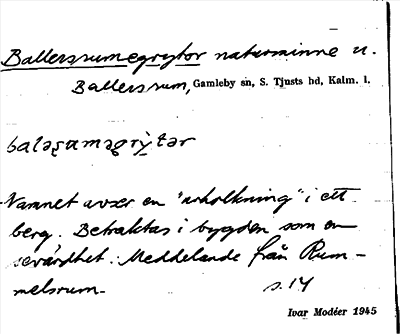 Ballersrumegrytor naturminne u.
Ballersrum, Gamleby sn, S. Tjusts hd, Kalm. l.
Namnet avser en "urholkning" i ett
berg. Betraktas i bygden som en
sevärdhet. Meddelande från Rum-
melsrum. s. 14
Ivar Modéer 1945